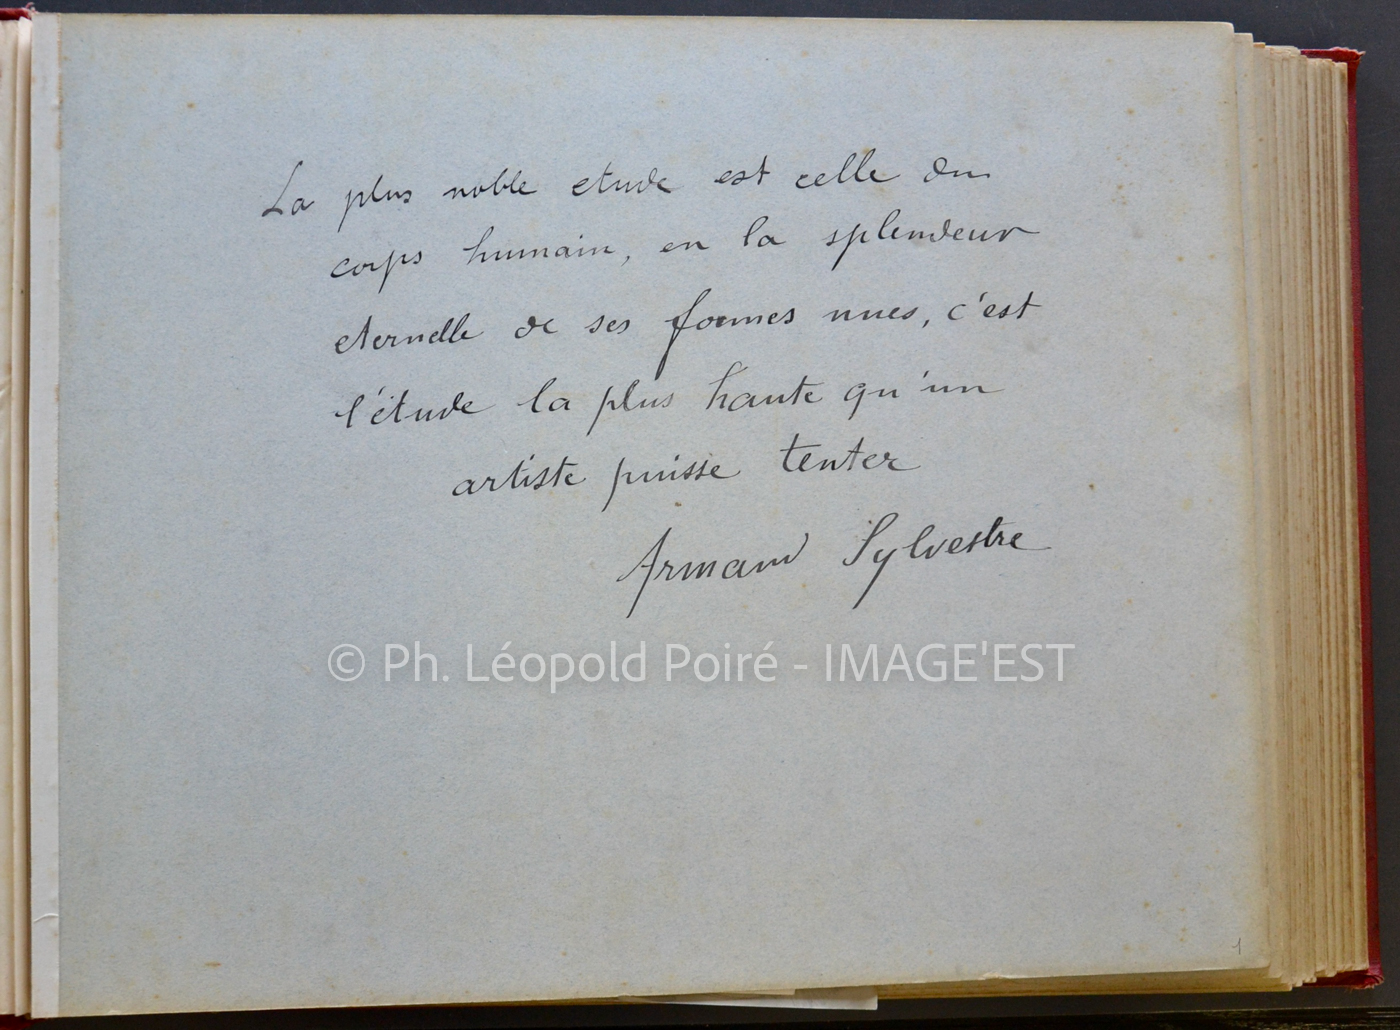 La plus noble etude est celle du
corps humain, en la splendeur
eternelle de ses formes nues, c'est
l'étude la plus haute qu'un
artiste puisse tenter
Armand Sylvestre
© Ph. Léopold Poiré - IMAGE'EST
1